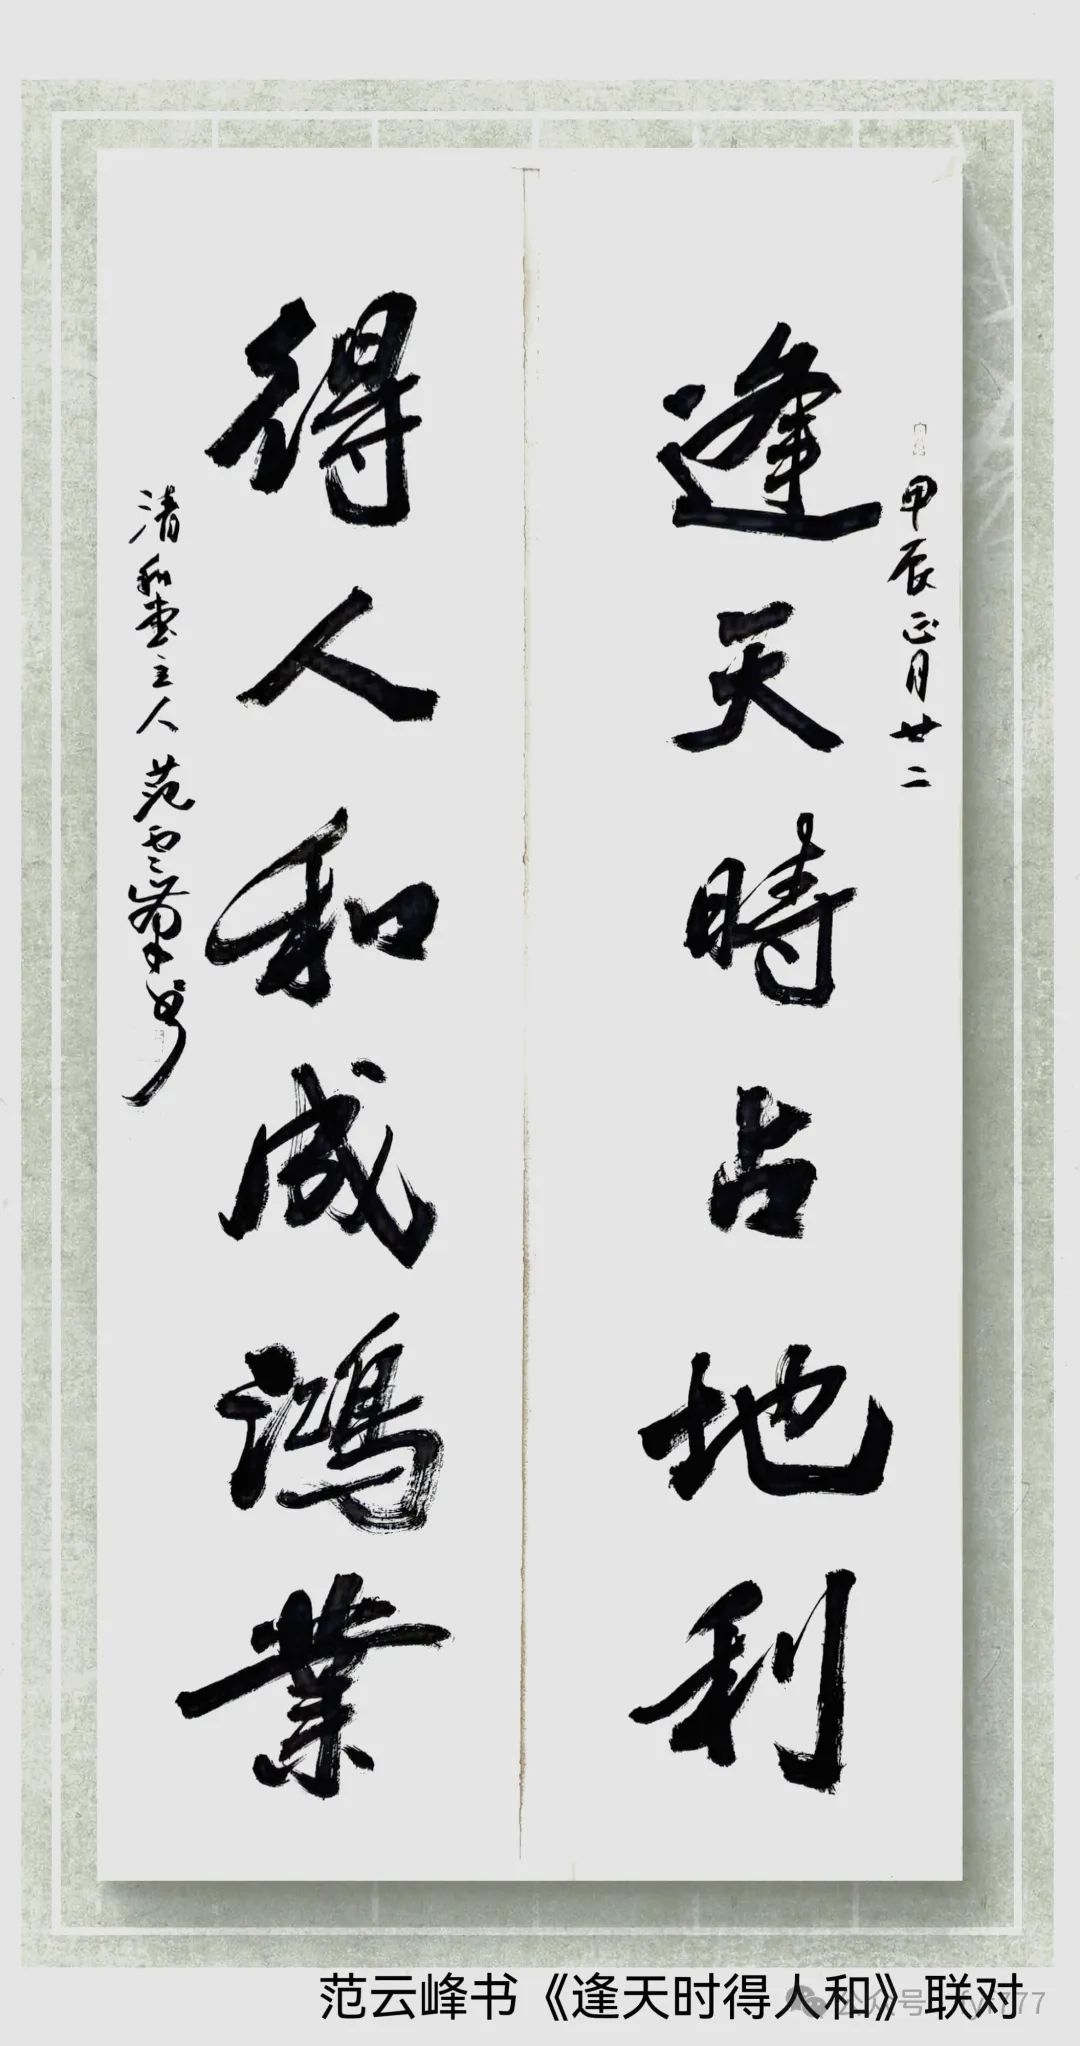 甲辰正月廿二
逢天時占地利
得人和成鴻業
清和堂主人范云峯书
范云峰书《逢天时得人和》联对
公众号